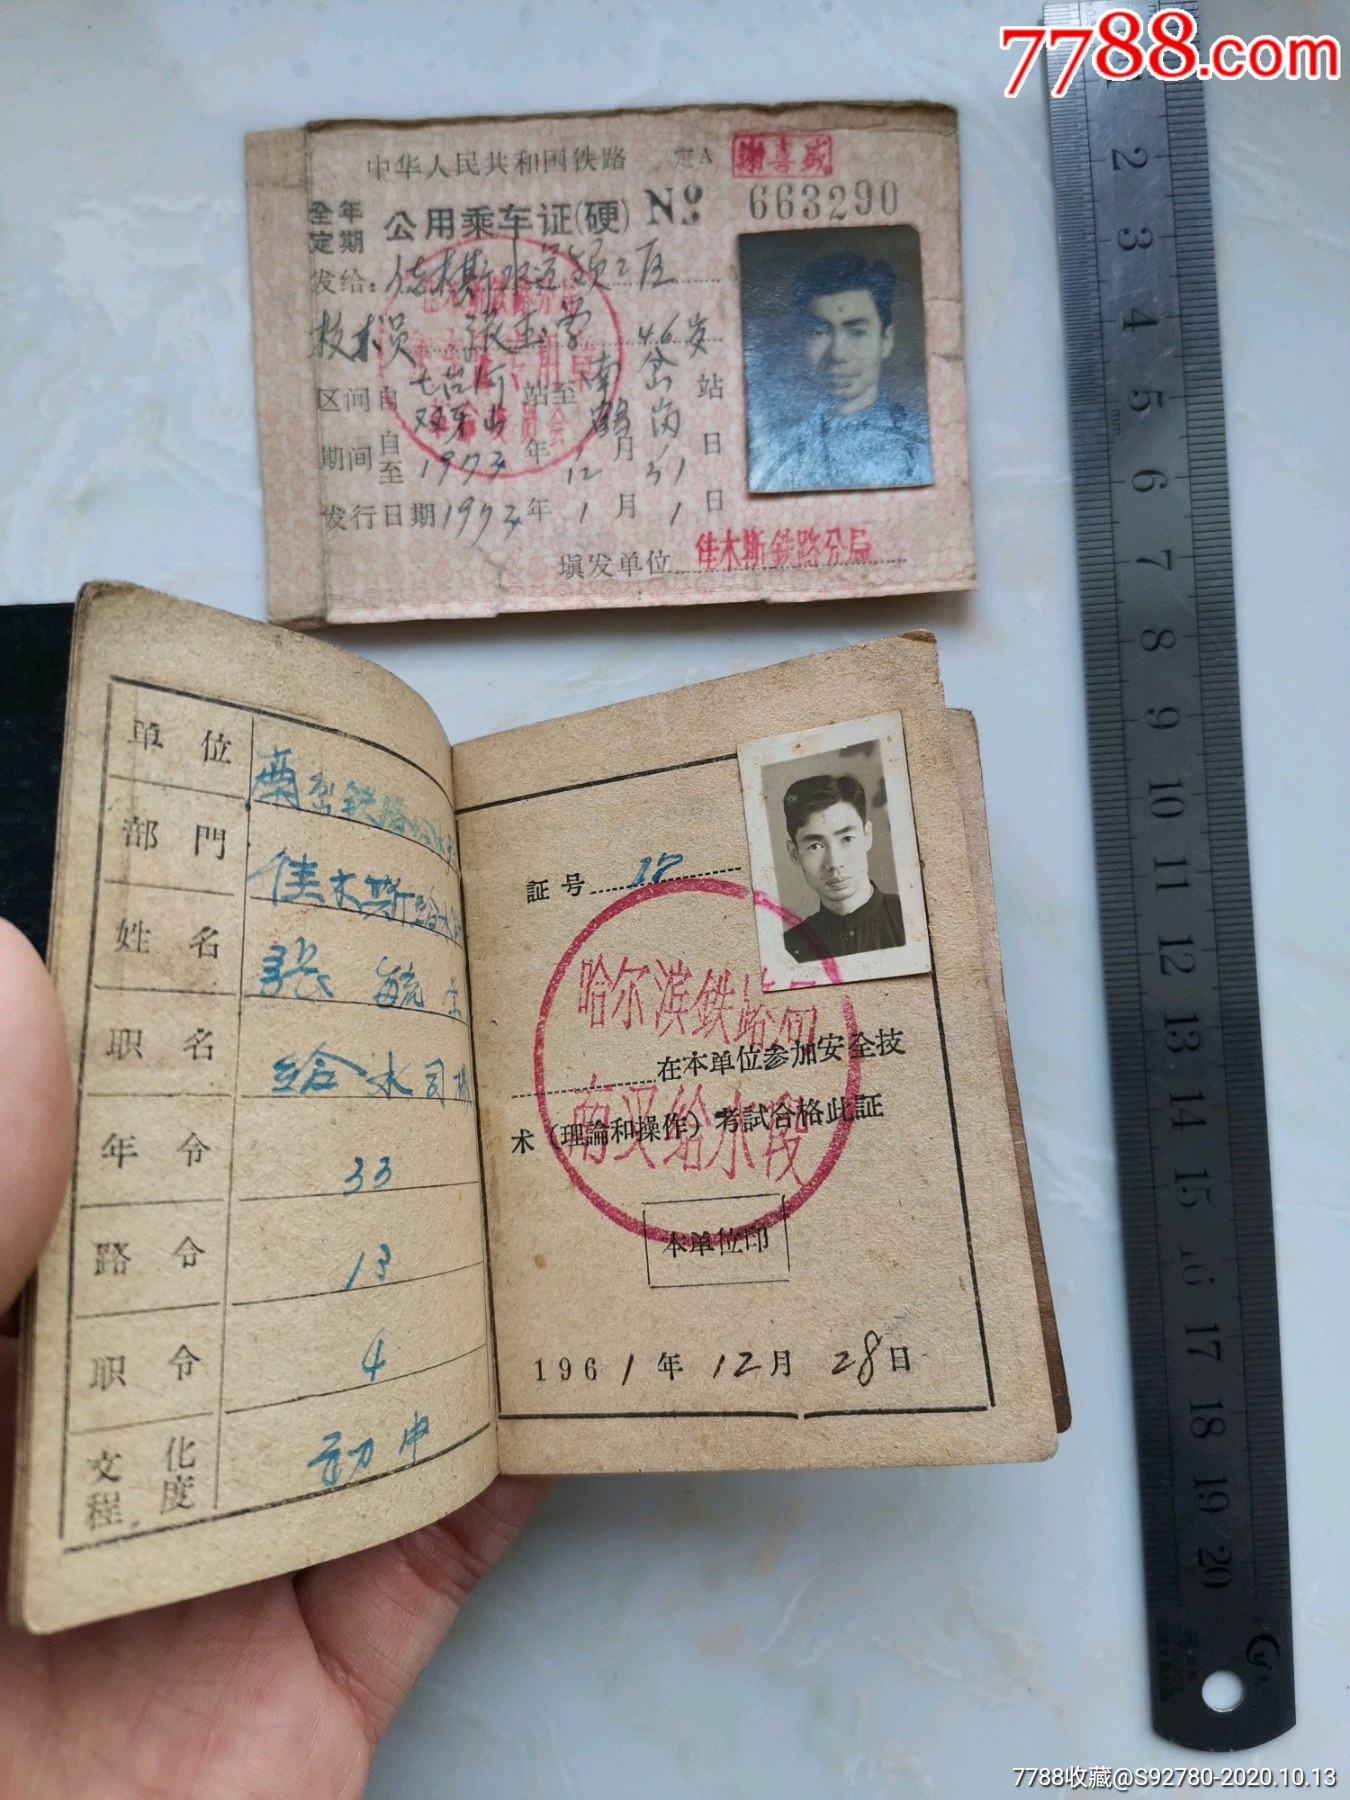 7788.com
中华人民共和国铁路 定A
谢喜盛
全年定期 公用乘车证(硬) No 663290
发给：佳木斯水道领工区
技术员 46岁
区间自 七台河 双鸭山 站至 南岔 鹤岗 站
期间自至 1973年12月31日
发行日期1973年1月1日
填发单位 佳木斯铁路分局
单位
部門 佳木斯给水
姓名 張毓
职名 给水司
年令 33
路令 13
职令 4
文化程度 初中
証号 12
哈尔滨鉄路局
在本单位参加安全技
术（理論和操作）考試合格此証
南叉给水段
本单位印
1961年12月28日
1
2
3
4
5
6
7
8
9
10
11
12
13
14
15
16
17
18
19
20
7788收藏@S92780-2020.10.13